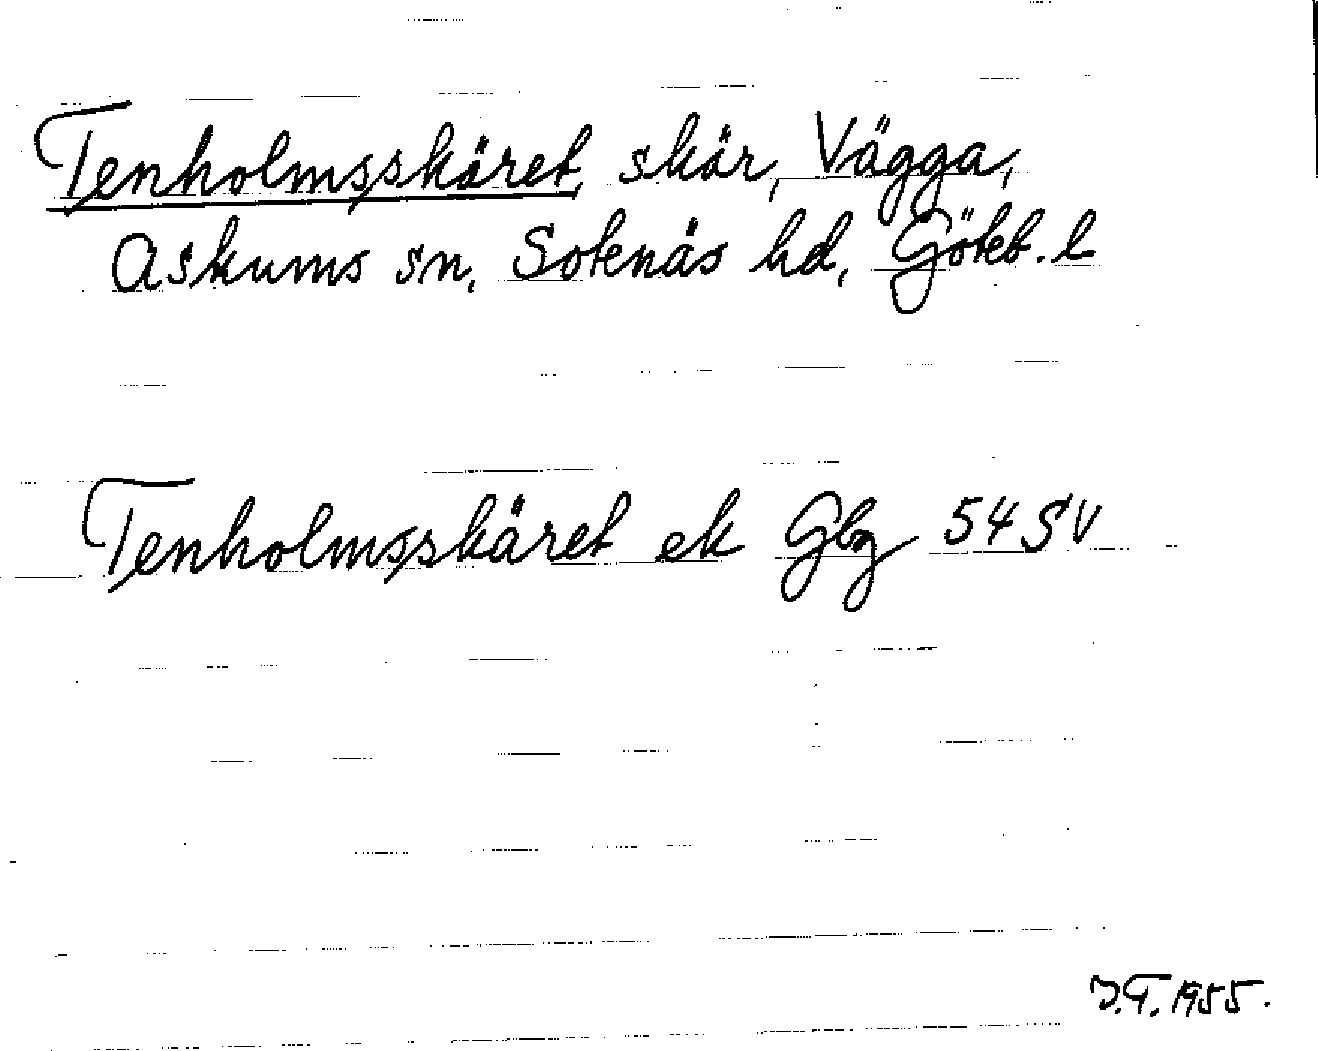 Tenholmsskäret, skär, Vägga,
Askums sn, Sotenäs hd, Göteb. l
Tenholmsskäret ek Gbg 54 SV
J.T. 1955.